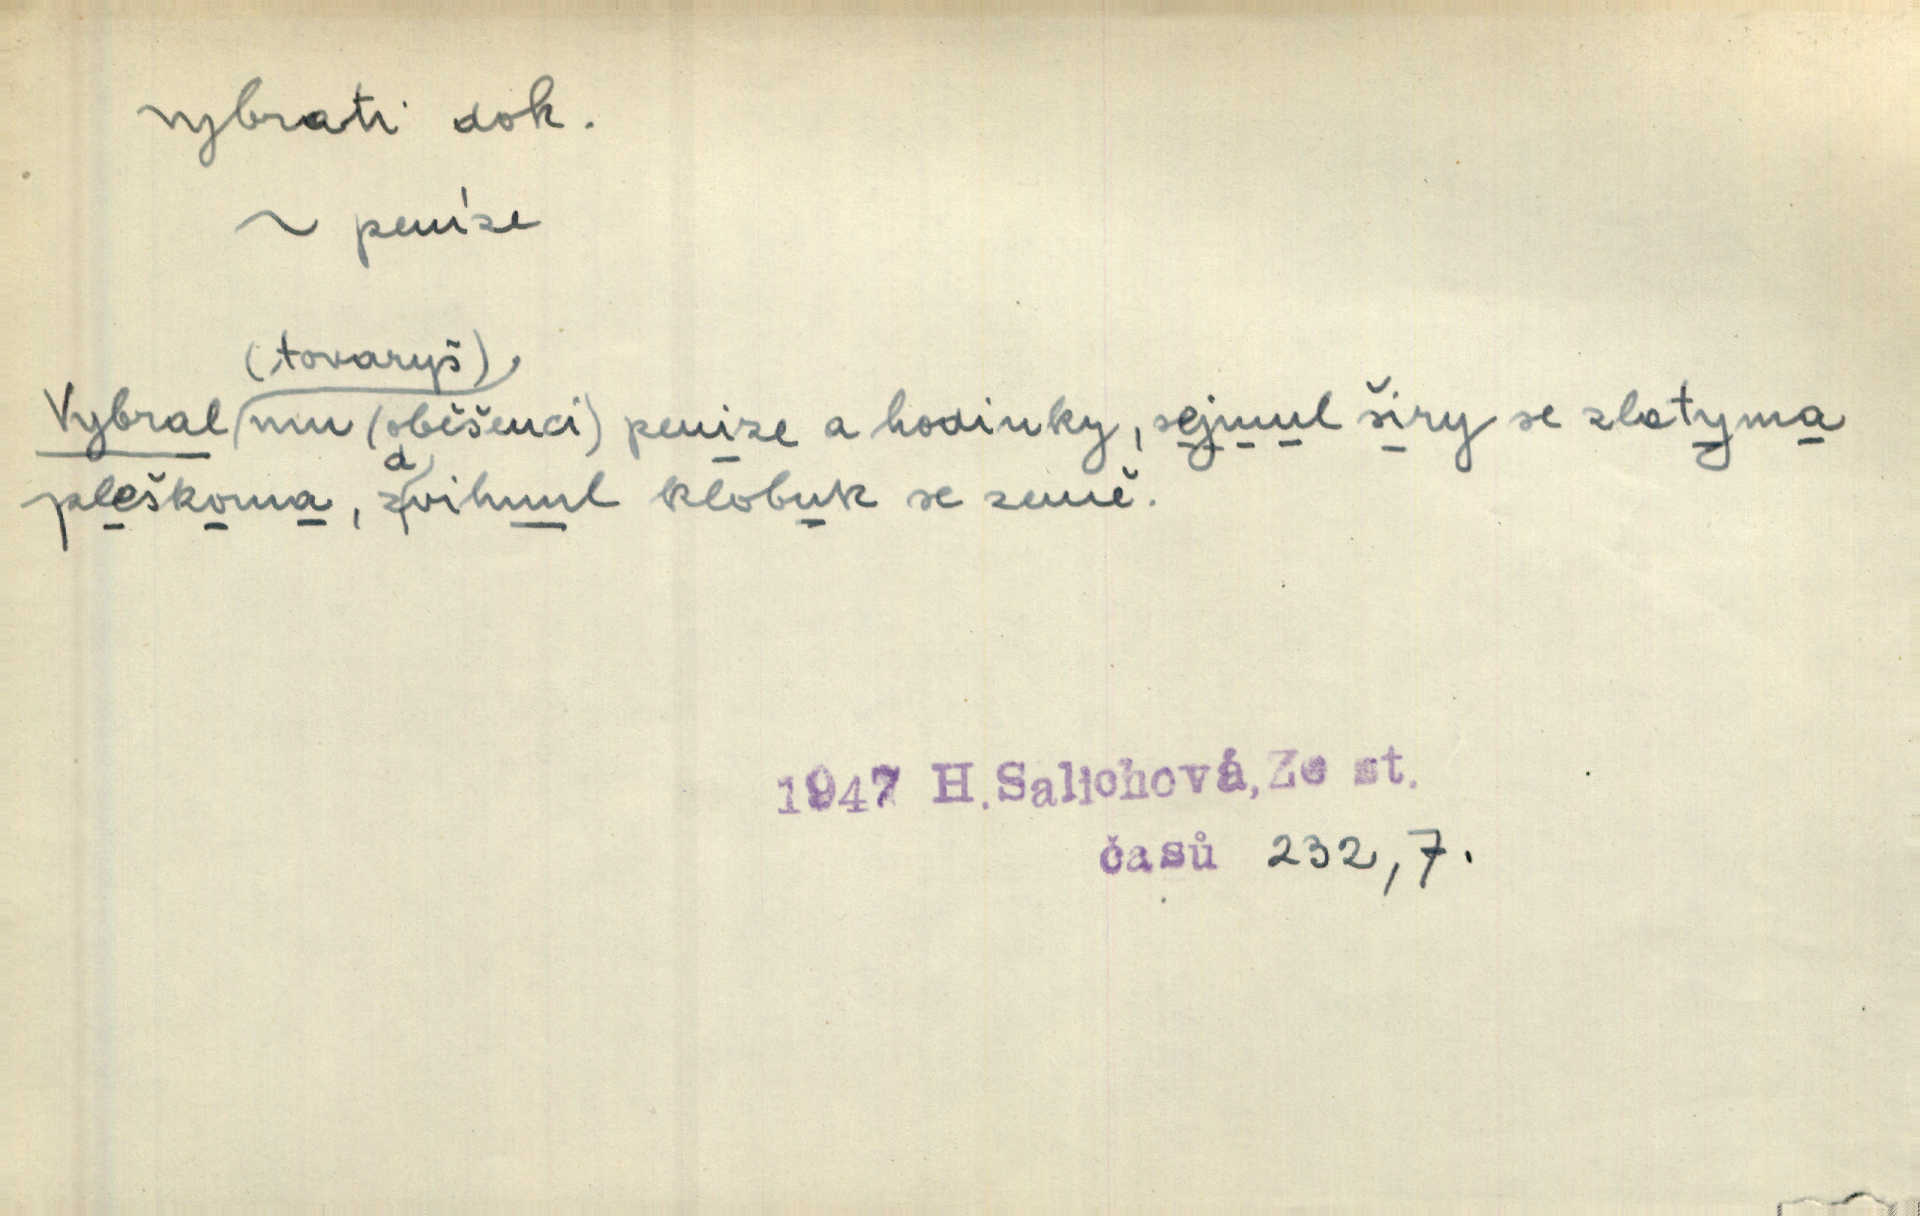 vybrati dok.
~ peníze
(tovaryš)
Vybral mu (oběšenci) penize a hodinky, sejmul širy se zlatyma
pleškoma, zdvihnul klobuk se země.
1947 H.Salichová, Ze st.
časů 232, 7.